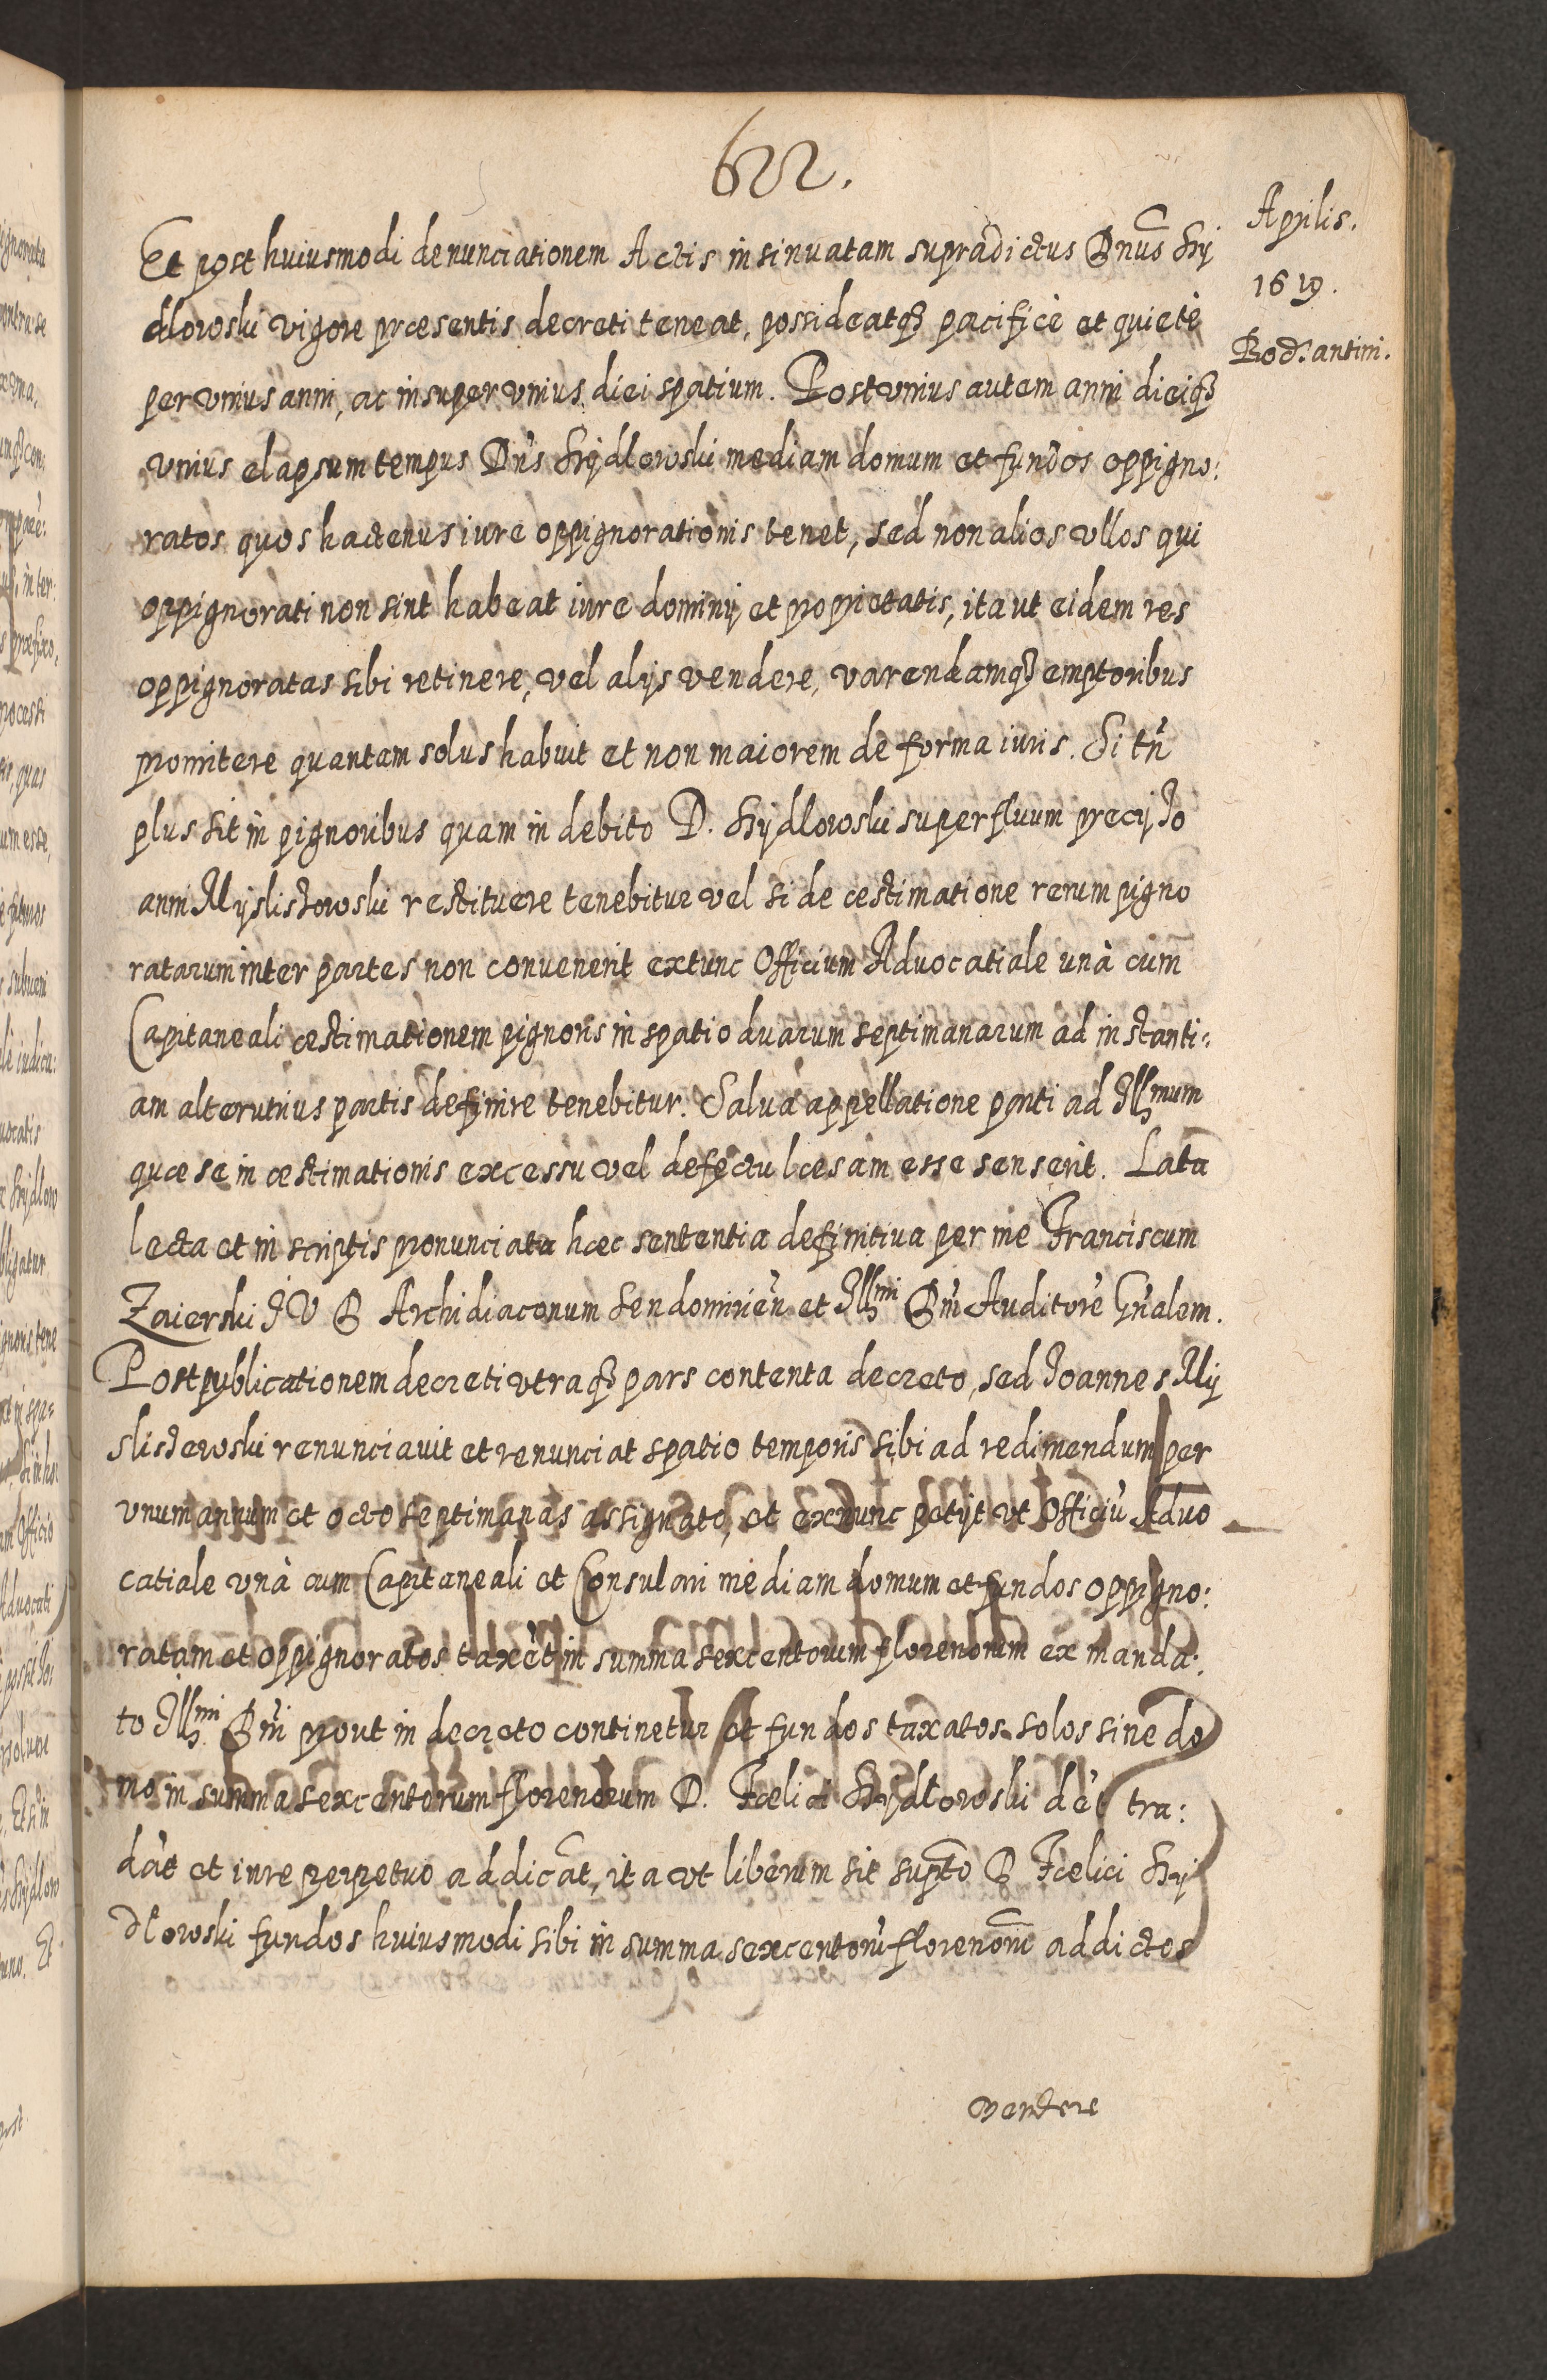 622.
Aprilis.
1619.
Bod: antini.
Et post huiusmodi denunciationem Actis insinuatam supradictus Dnus Szy
dlowski vigore præsentis decreti teneat, possideatq3 pacificè et quietè
per vnius anni, ac insuper vnius diei spatium. Post vnius autem anni dieiq3
vnius elapsum tempus Dn̄s Szydlowski mediam domum et fundos oppigno:
ratos quos hactenus iure oppignorationis tenet, sed non alios vllos qui
oppignorati non sint habeat iure dominij et proprietatis, ita ut eidem res
oppignoratas sibi retinere, vel alijs vendere, varendamq3 emptoribus
promitere quantam solus habuit et non maiorem de forma iuris. Si tn̄
plus sit in pignoribus quam in debito D. Szydlowski superfluum precij Jo
anni Myslishowski restituere tenebitur vel si de æstimatione rerum pigno
ratarum inter partes non convenerit extunc Officium Advocatiale unà cum
Capitaneali æstimationem pignoris in spatio duarum septimanarum ad instanti:
am alterutrius partis definire tenebitur. Salua appellatione parti ad Illmum
quæ se in æstimationis excessu vel defectu læsam esse senserit. Lata
lecta et in scriptis pronunciata hæc sententia definitiua per me Franciscum
Zaierski J V D Archidiaconum Sendomirien̄ et Illmi Dni Auditorē Gn̄alem.
Post publicationem decreti vtraq3 pars contenta decreto, sed Joannes My
slishewski renunciauit et renunciat spatio temporis sibi ad redimendum per
vnum annum et octo septimanas assignato, et exnunc petijt vt Officiū Aduo
catiale vnà cum Capitaneali et Consulari mediam domum et fundos oppigno:
ratam et oppignoratos taxèt in summa sexcentorum florenorum ex manda:
to Illmi Dni prout in decreto continetur et fundos taxatos solos sine do
mo in summa sexcentorum florenorum D. Fœlici Szydlowski dèt tra:
dàt et iure perpetuo addicat, ita vt liberum sit supto D Fœlici Szy
dlowski fundos huiusmodi sibi in summa sexcentorū florenorū addictos
vendere